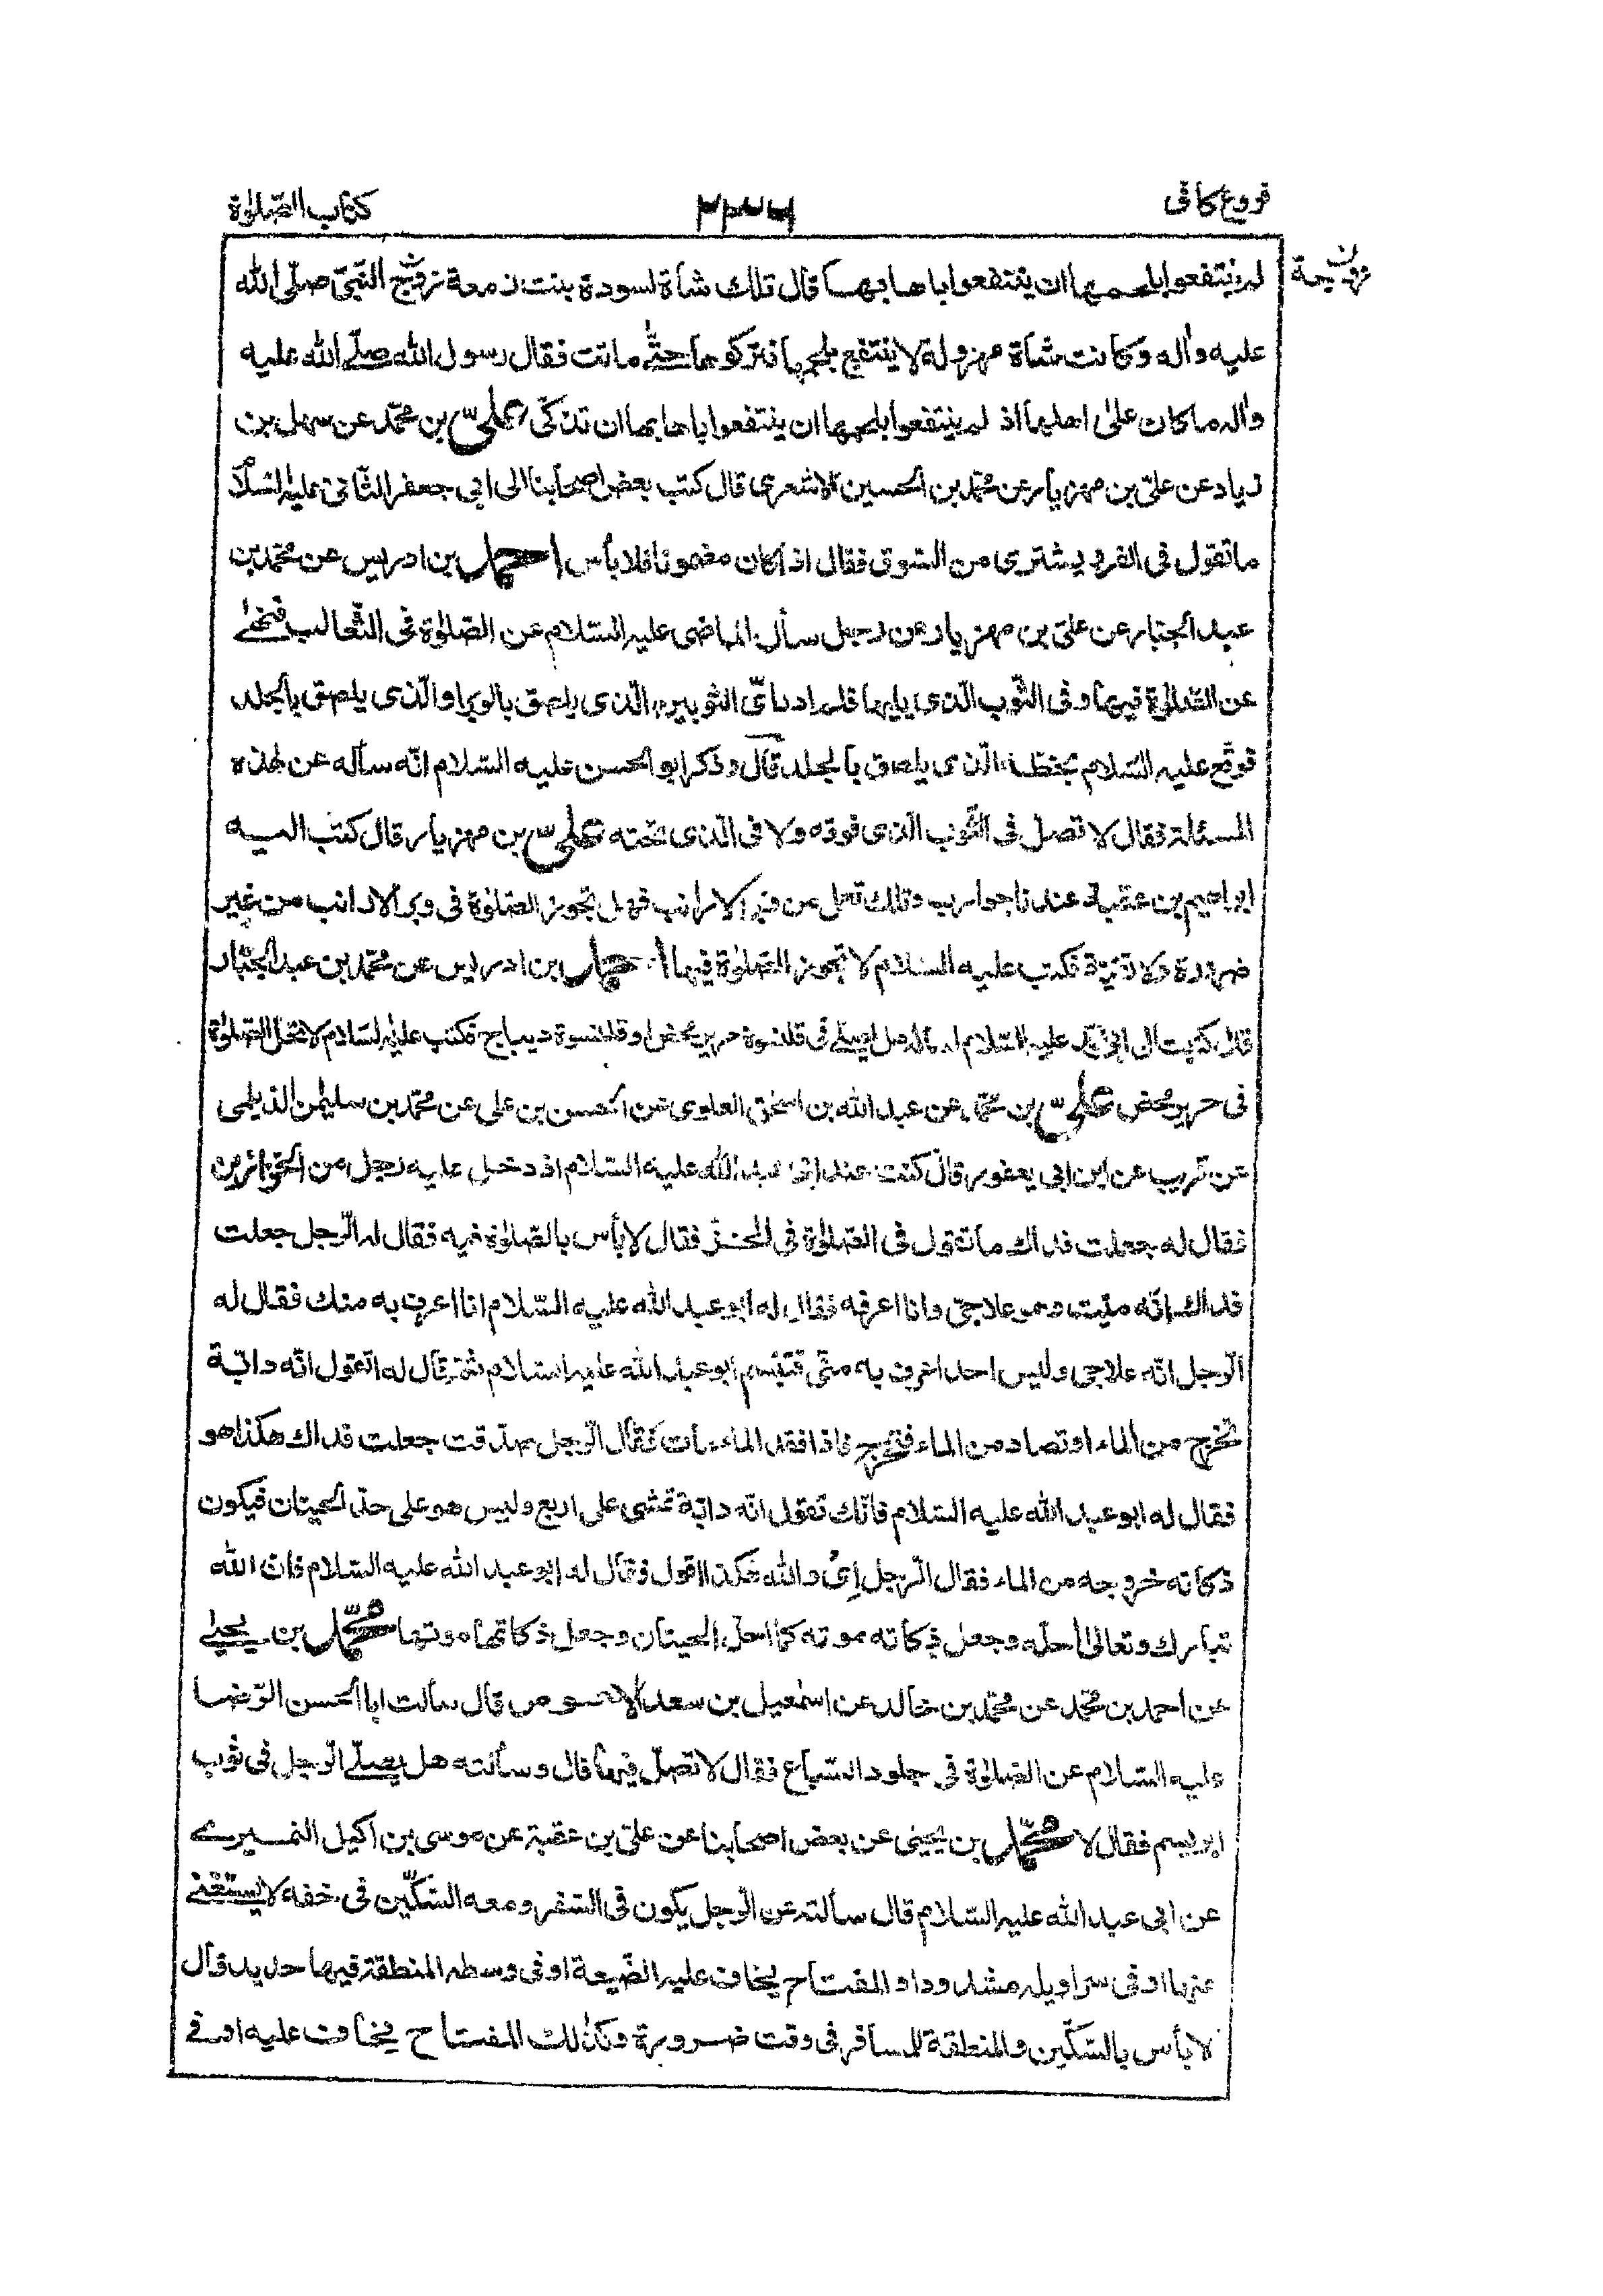 فروع كافى
٢٣٦
كتاب الصّلوٰة
زوجة
لم ينتفعوا بلحمها ان ينتفعوا باهابها قال تلك شاة لسودة بنت زمعة زوج النّبىّ صلّى الله
عليه واٰله وكانت شاة مهزولة لا ينتفع بلحمها فتركوها حتّٰى ماتت فقال رسول الله صلّى الله عليه
واٰله ما كان علىٰ اهلها اذ لم ينتفعوا بلحمها ان ينتفعوا باهابها ان تذكّى علىّ بن محمّد عن سهل بن
زياد عن علىّ بن مهزيار عن محمّد بن الحسين الاشعرى قال كتب بعض اصحابنا الى ابى جعفر الثّانى عليه السّلام
ما تقول فى الفرو يشترى من السّوق فقال اذا كان مضمونا فلا بأس احمد بن ادريس عن محمّد بن
عبد الجبّار عن علىّ بن مهزيار عن رجل سأل الماضى عليه السّلام عن الصّلوٰة فى الثّعالب فنهى
عن الصّلوٰة فيها وفى الثّوب الّذى يليها فلم ادر اىّ الثّوبين الّذى يلصق بالوبر او الّذى يلصق بالجلد
فوقّع عليه السّلام بخطّه الّذى يلصق بالجلد قال وذكر ابو الحسن عليه السّلام انّه سأله عن هٰذه
المسئلة فقال لا تصلّ فى الثّوب الّذى فوقه ولا فى الّذى تحته علىّ بن مهزيار قال كتب اليه
ابراهيم بن عقبة عندنا جوارب وتكك تعمل من وبر الارانب فهل تجوز الصّلوٰة فى وبر الارانب من غير
ضرورة ولا تقيّة فكتب عليه السّلام لا تجوز الصّلوٰة فيها احمد بن ادريس عن محمّد بن عبد الجبّار
قال كتبت الى ابى محمّد عليه السّلام اسأله هل اصلّى فى قلنسوة حرير محض او قلنسوة ديباج فكتب عليه السّلام لا تحلّ الصّلوٰة
فى حرير محض علىّ بن محمّد عن عبد الله بن اسحٰق العلوى عن الحسن بن على عن محمّد بن سليمٰن الديلمى
عن قريب عن ابن ابى يعفور قال كنت عند ابى عبد الله عليه السّلام اذ دخل عليه رجل من الخزّازين
فقال له جعلت فداك ما تقول فى الصّلوٰة فى الخزّ فقال لا بأس بالصّلوٰة فيه فقال له الرّجل جعلت
فداك انّه ميّت وهو علاجى وانا اعرفه فقال له ابو عبد الله عليه السّلام انا اعرف به منك فقال له
الرّجل انّه علاجى وليس احد اعرف به منّى فتبسّم ابو عبد الله عليه السّلام ثمّ قال له اتقول انّه دابّة
تخرج من الماء او تصاد من الماء فتخرج فاذا فقد الماء مات فقال الرّجل صدقت جعلت فداك هكذا هو
فقال له ابو عبد الله عليه السّلام فانّك تقول انّه دابّة تمشى على اربع وليس هو على حدّ الحيتان فيكون
ذكاته خروجه من الماء فقال الرّجل اى والله هٰكذا اقول فقال له ابو عبد الله عليه السّلام فان الله
تبارك وتعالىٰ احلّه وجعل ذكاته موته كما احلّ الحيتان وجعل ذكاتها موتها محمّد بن يحيىٰ
عن احمد بن محمّد عن محمّد بن خالد عن اسمٰعيل بن سعد الاحوص قال سألت ابا الحسن الرّضا
عليه السّلام عن الصّلوٰة فى جلود السّباع فقال لا تصلّ فيها قال وسألته هل يصلّى الرّجل فى ثوب
ابريسم فقال لا محمّد بن يحيىٰ عن بعض اصحابنا عن علىّ بن عقبة عن موسى بن اكيل النّميرى
عن ابى عبد الله عليه السّلام قال سألته عن الرّجل يكون فى السّفر ومعه السّكّين فى خفه لا يستغنى
عنها او فى سراويله مشدودا والمفتاح يخاف عليه الضّيعة او فى وسطه المنطقة فيها حديد قال
لا بأس بالسّكّين والمنطقة للمسافر فى وقت ضرورة وكذٰلك المفتاح يخاف عليه او فى